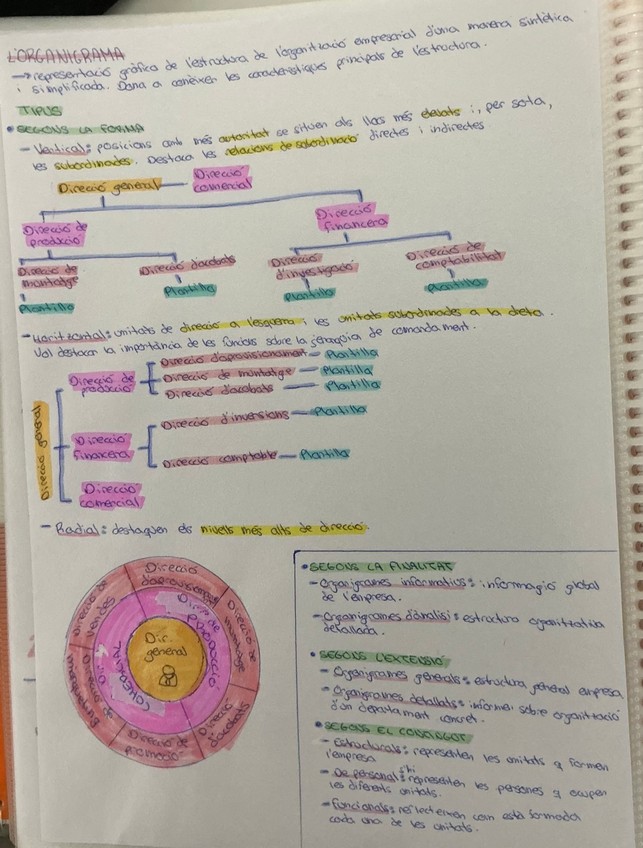 L'ORGANIGRAMA
→ representació gràfica de l'estructura de l'organització empresarial d'una manera sintètica
i simplificada. Dona a conèixer les característiques principals de l'estructura.
TIPUS
• SEGONS LA FORMA
- Vertical: posicions amb més autoritat se situen als llocs més elevats i, per sota,
les subordinades. Destaca les relacions de subordinació directes i indirectes.
Direcció general
Direcció comercial
Direcció de producció
Direcció financera
Direcció de muntatge
Direcció d'acabats
Direcció d'investigació
Direcció de comptabilitat
Plantilla
Plantilla
Plantilla
Plantilla
- Horitzontal: unitats de direcció a l'esquerra i les unitats subordinades a la dreta.
Vol destacar la importància de les funcions sobre la jerarquia de comandament.
Direcció general
Direcció de producció
Direcció d'aprovisionament - Plantilla
Direcció de muntatge - Plantilla
Direcció d'acabats - Plantilla
Direcció financera
Direcció d'inversions - Plantilla
Direcció comptable - Plantilla
Direcció comercial
- Radial: destaquen els nivells més alts de direcció.
Dir. general
Dir. de PRODUCCIÓ
D. COMERCIAL
Direcció d'aprovisionament
Direcció de muntatge
Direcció d'acabats
Direcció de promoció
Direcció de màrqueting
Direcció de vendes
• SEGONS LA FINALITAT
- Organigrames informatius: informació global
de l'empresa.
- Organigrames d'anàlisi: estructura organitzativa
detallada.
• SEGONS L'EXTENSIÓ
- Organigrames generals: estructura general empresa
- Organigrames detallats: informen sobre organització
d'un departament concret.
• SEGONS EL CONTINGUT
- Estructurals: representen les unitats q formen
l'empresa
- De personal: representen les persones q ocupen
les diferents unitats.
- Funcionals: reflecteixen com està formada
cada una de les unitats.